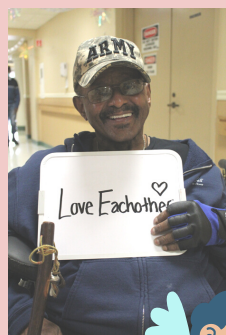 ARMY
Love Eachother